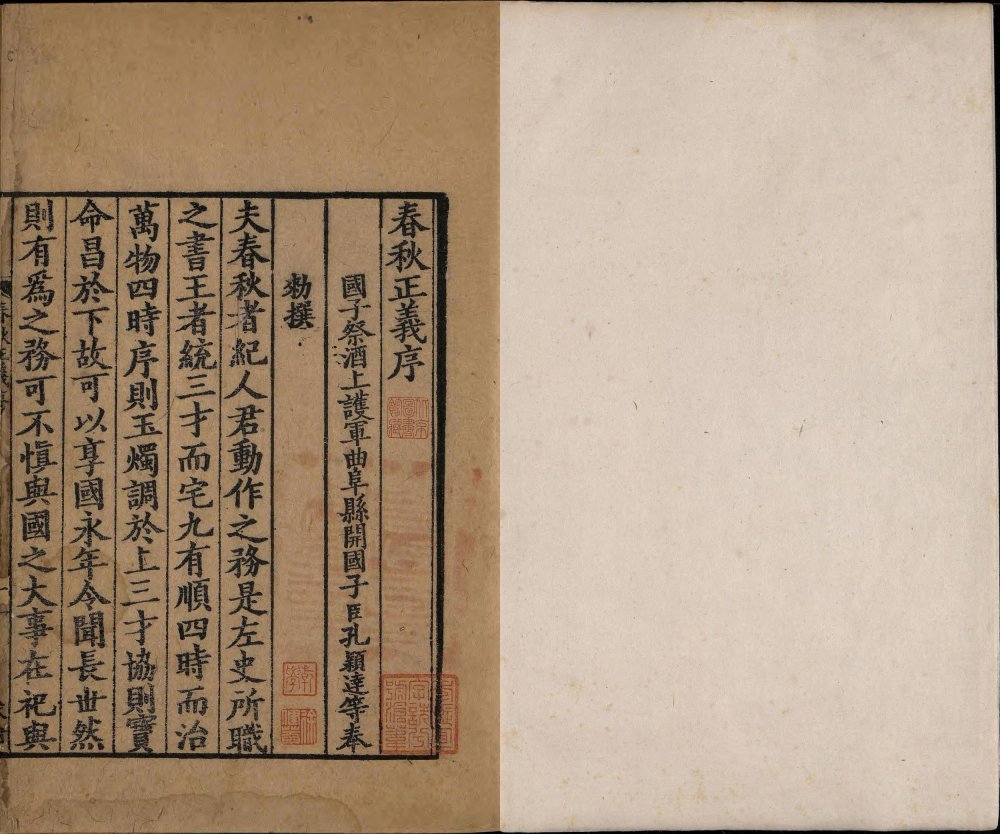 春秋正義序
國子祭酒上護軍曲阜縣開國子臣孔穎達等奉
勑撰
夫春秋者紀人君動作之務是左史所職
之書王者統三才而宅九有順四時而治
萬物四時序則玉燭調於上三才協則寶
命昌於下故可以享國永年令聞長世然
則有爲之務可不愼與國之大事在祀與